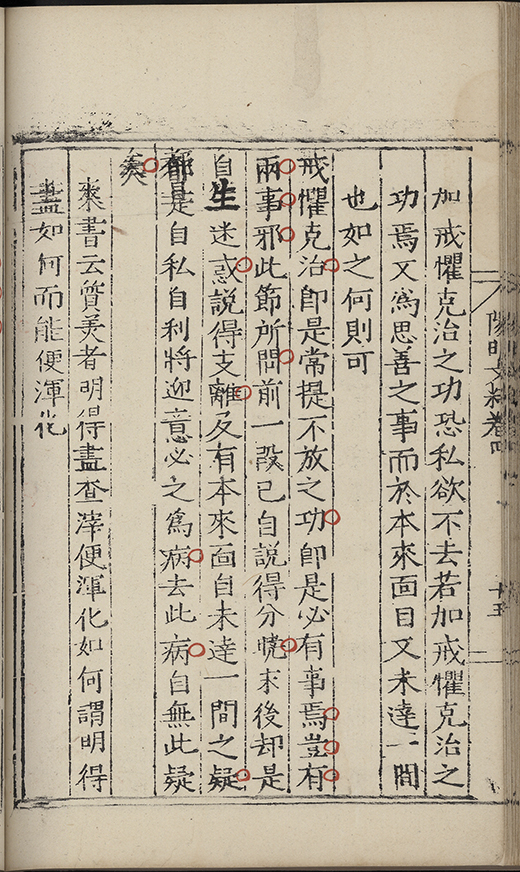 加戒懼克治之功恐私欲不去若加戒懼克治之
功焉又爲思善之事而於本來面目又未達一間
也如之何則可
戒懼克治卽是常提不放之功卽是必有事焉豈有
兩事邪此節所問前一段已自說得分曉末後却是
自生迷惑說得支離及有本來面自未達一間之疑
都是自私自利將迎意必之爲病去此病自無此疑
矣
來書云質美者明得盡查滓便渾化如何謂明得
盡如何而能便渾化
陽明文粹卷四
十五